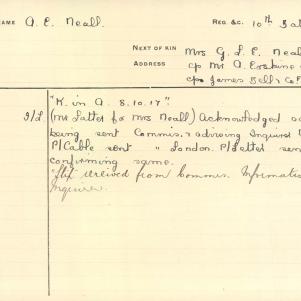 NAME A. E. Neall. REG. &C. 10th Bat
NEXT OF KIN Mrs G. L. E. Neal
ADDRESS c/o Mr A. Erskine
c/o James Bell & Co
"K. in A. 8.10.17".
3/L (Mr Latter for Mrs Neall) Acknowledged
being sent Commis. & advising Inquirer
P/Cable sent " London. P/Letter sen
confirming same.
received from Commis. Informatio
Inquirer.